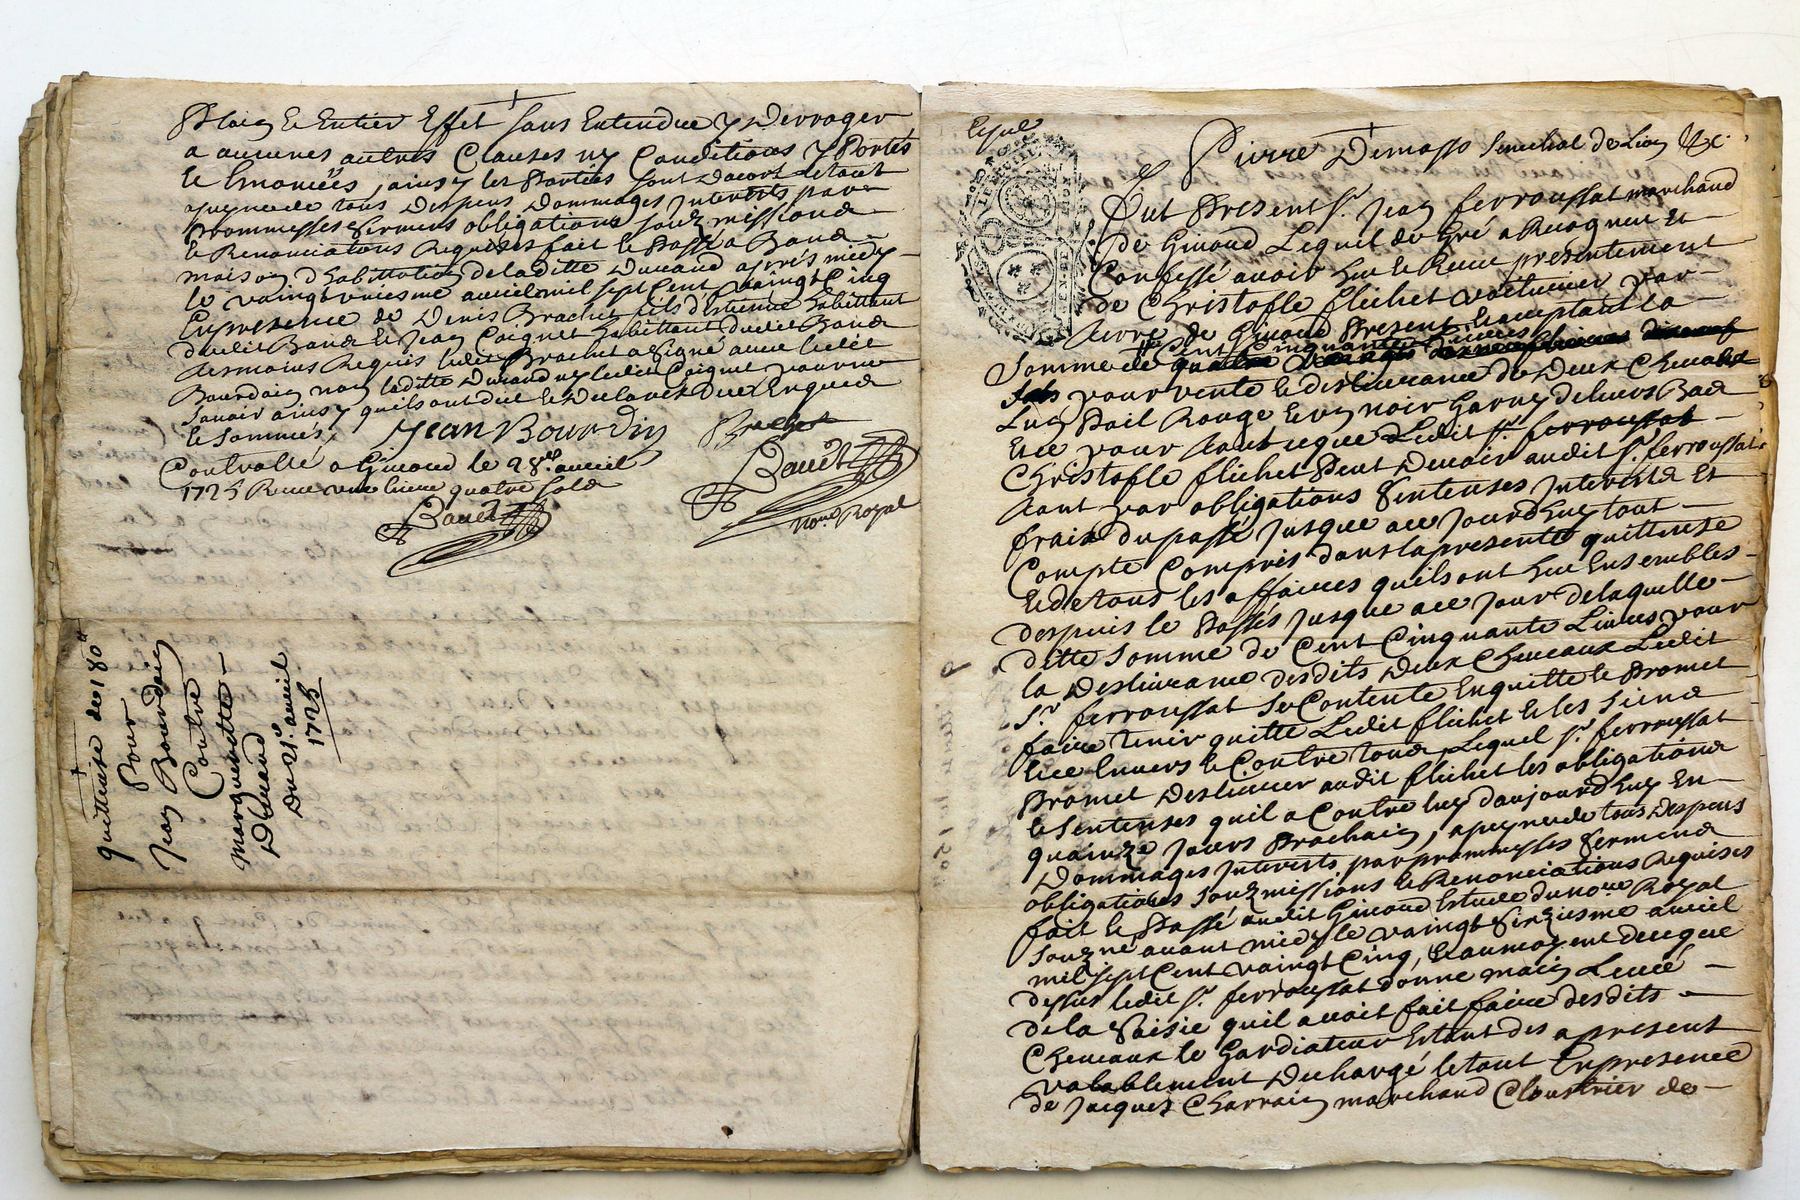 Plain Et Entier Effet sans Entendre y Derroger
a aucunes autres Clauses ny Conditions y Portés
et Enoncées, ainsy les Parties sont dacort letout
apeyne de tous Despens Dommages Interests par
Prommesses serments obligations souzmissions
et Renonciations Requises fait et Passé a
maison d'habittation de laditte Durand aprés midy
le vaingt uniesme avril mil sept Cent vaingt Cinq
En presence de Denis Brachet fils d'Estienne habittant
dudit et Jean Coignet habittant dudit
tesmoins Requis ledit Brachet a signé avec ledit
Bourdin non laditte Durand ny ledit Coignet pour ne
savoir ainsy quils ont dit et Declaré de ce Enquis
et sommés,
Jean Bourdin Brachet
Controllé a Givord le 28me avril
1725 Receu une livre quatre sols
nore Royal
quittense de 180
Pour
Jean Bourdin
Contre
Durand
Du 21e avril
1725
Pierre Senechal de Lion &c
Fut Present sr. Jean ferroussat marchand
de Givord Lequel de Gré a Recogneu et
Confessé avoir heu et Receu presentement
de Christofle flichet voiturier par
terre de Givord Present et acceptant la
Somme de Cent Cinquante livres
pour vente et deslivrance de Deux Chevaux
Lun Poil Rouge et un noir Garny de leurs
Et ce pour tout ce que Ledit
Christofle flichet Peut Devoir audit sr. ferroussat
tant par obligations Sentenses Interests Et
frais du passé Jusque a ce Jourd'huy tout
Compte Compris dans la presente quittense
Et de tous les affaires quils ont heu Ensembles
despuis le Passés Jusque a ce Jour de laquelle
ditte Somme de Cent Cinquante Livres pour
la Deslivrance desdits Deux Chevaux Ledit
Sr. ferroussat se Contente En quitte et Promet
faire tenir quitte Ledit flichet et les siens
Et ce Envers et Contre tous, Lequel sr. ferroussat
Promet Deslivrer audit flichet les obligations
et Sentenses quil a Contre luy d'aujourd'huy En
quainze Jours Prochain, apeyne de tous Despens
Dommages Interests par prommesses Serments
obligations souzmissions et Renonciations Requises
fait et Passé audit Givord Estude du nore Royal
souzné avant midy le vaingt sixiesme avril
mil sept Cent vaingt Cinq, et au moyens de ce que
dessus ledit sr. ferroussat donne main Levée
de la Saisie quil avoit fait faire desdits
Chevaux le Gardiateur Estant des a present
valablement Dechargé letout En presence
de Jacques Charrain marchand de